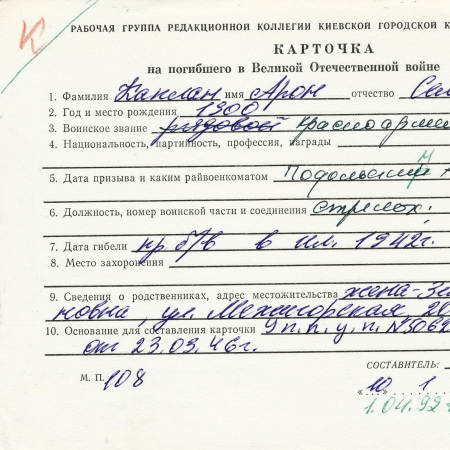 К
РАБОЧАЯ ГРУППА РЕДАКЦИОННОЙ КОЛЛЕГИИ КИЕВСКОЙ ГОРОДСКОЙ К
КАРТОЧКА
на погибшего в Великой Отечественной войне
1. Фамилия Каплан имя Арон отчество Сам
2. Год и место рождения 1900
3. Воинское звание рядовой красноарме
4. Национальность, партийность, профессия, награды
5. Дата призыва и каким райвоенкоматом Подольским
6. Должность, номер воинской части и соединения стрелок;
7. Дата гибели пр б/в в ил. 1942г.
8. Место захоронения
9. Сведения о родственниках, адрес местожительства жена-Зи
новна, ул. Межигорская, 20
10. Основание для составления карточки Уп.п.у.п. №5069
от 23.03.46г.
СОСТАВИТЕЛЬ:
М. П. 108
"10" 1
1.04.92